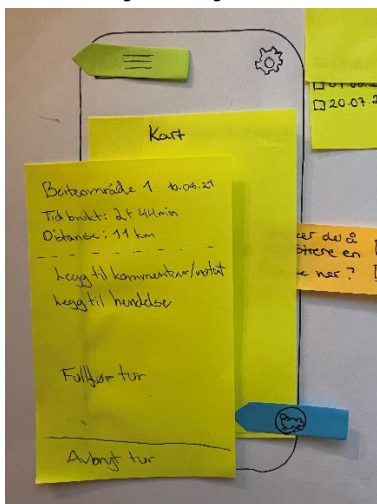 Kart
Beiteområde 1 10.06.21
Tid brukt: 2t 44min
Distanse: 11 km
Legg til kommentar/notat
Legg til hendelse
Fullfør tur
Avbryt tur
20.07.2
du å
en
her?